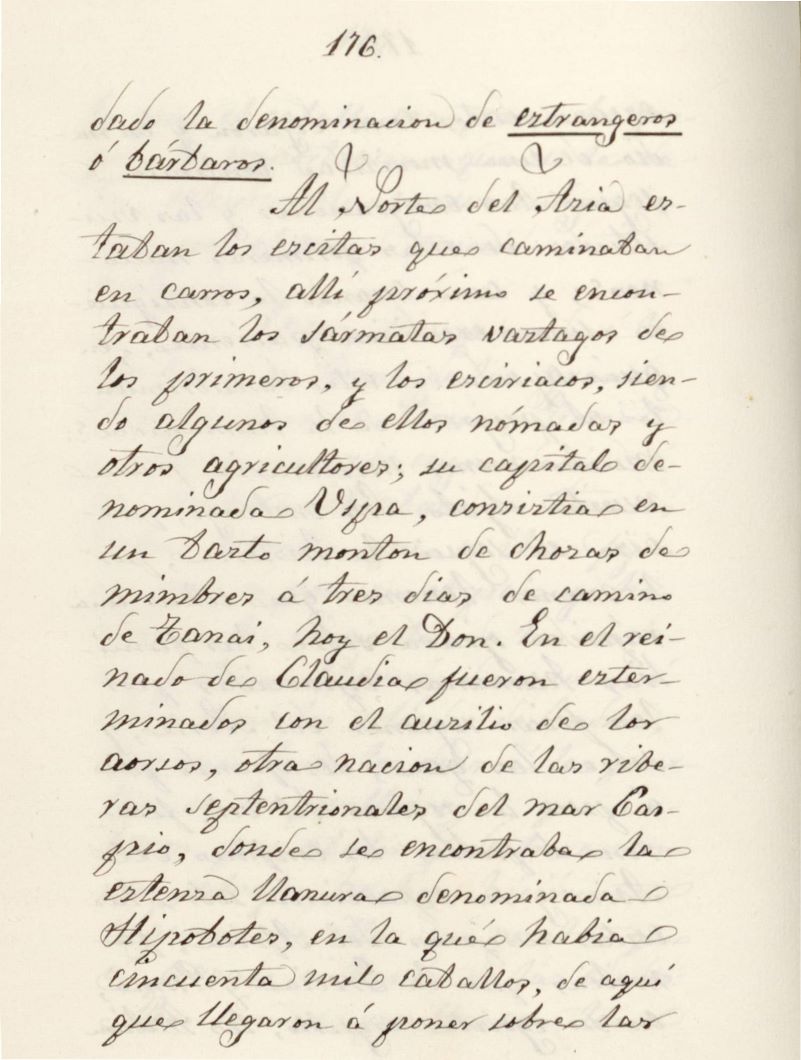 176.
dado la denominacion de estrangeros
ó bárbaros.
Al Norte del Asia es-
taban los escitas que caminaban
en carros, allí próximo se encon-
traban los sármatas vastagos de
los primeros, y los esciriacos, sien-
do algunos de ellos nómadas y
otros agricultores; su capital de-
nominada Uspa, consistia en
un basto monton de chozas de
mimbres á tres dias de camino
de Tanai, hoy el Don. En el rei-
nado de Claudia fueron ester-
minados con el auxilio de los
aorsos, otra nacion de las ribe-
ras septentrionales del mar Cas-
pio, donde se encontraba la
estensa llanura denominada
Hipobotes, en la qué habia
cincuenta mil caballos, de aquí
que llegaron á poner sobre las